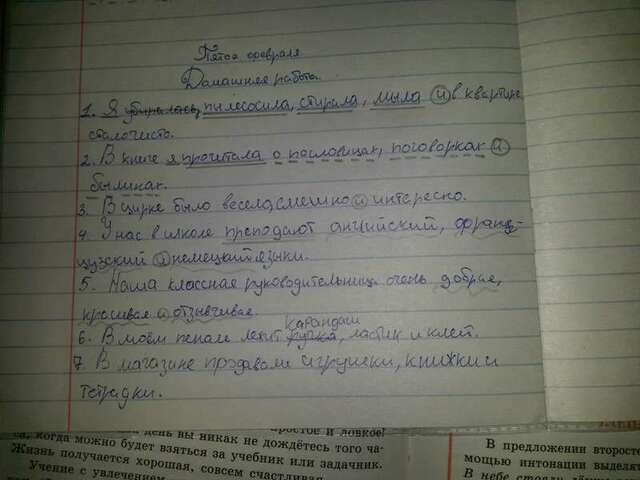 Пятое февраля
Домашняя работа.
1. Я убиралась, пылесосила, стирала, мыла и в квартире
стало чисто.
2. В книге я прочитала о пословицах, поговорках и
былинах.
3. В цирке было весело, смешно и интересно.
4. У нас в школе преподают английский, францу-
цузский и немецкий языки.
5. Наша классная руководительница очень добрая,
красивая и отзывчивая.
карандаш
6. В моём пенале лежит ручка, ластик и клей.
7. В магазине продавали игрушки, книжки и
тетрадки.
простое и ловкое!
са, когда можно будет взяться за учебник или задачник.
день вы никак не дождётесь того ча-
Жизнь получается хорошая, совсем счастливая
Учение с увлечением
В предложении второсте
мощью интонации выделят
В небе стояло